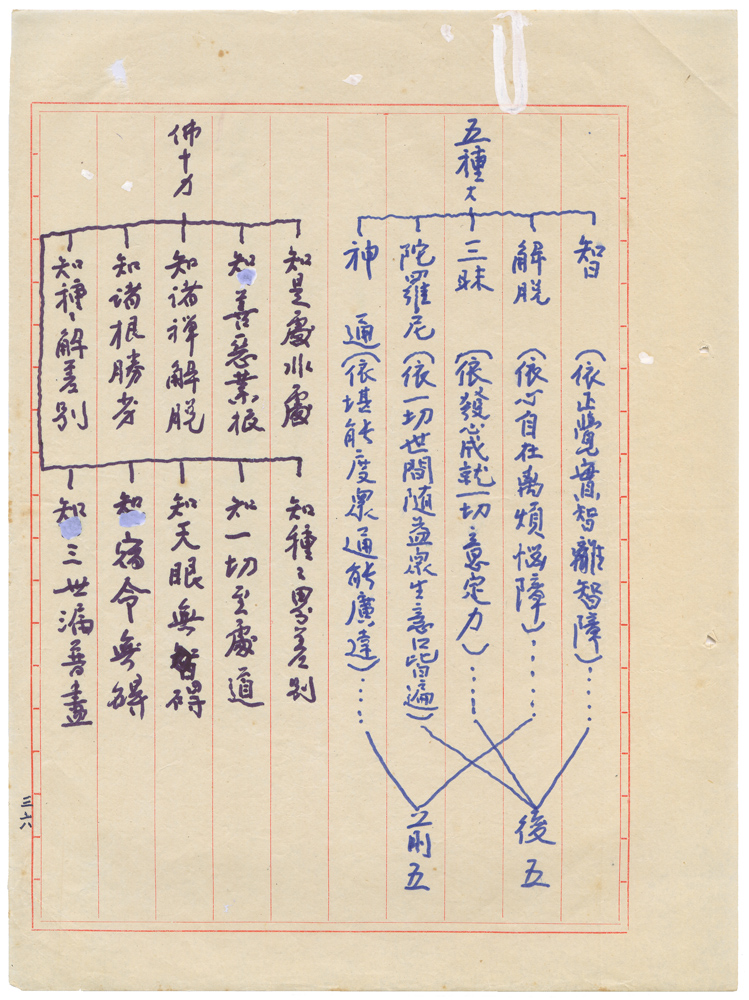 五種大
智 (依正覺實智離智障)……
解脱 (依心自在离煩惱障)……
三昧 (依發心成就一切意定力)……
陀羅尼 (依一切世間随益衆生意口皆遍)
神通 (依堪能度衆通能廣達)……
後五
前五
佛十力
知是處非處
知善惡業报
知诸禅解脱
知诸根勝劣
知種〻解差別
知種〻界差别
知一切至處道
知天眼無碍
知宿命無碍
知三世漏普盡
三六